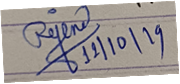 Rejend
12/10/19